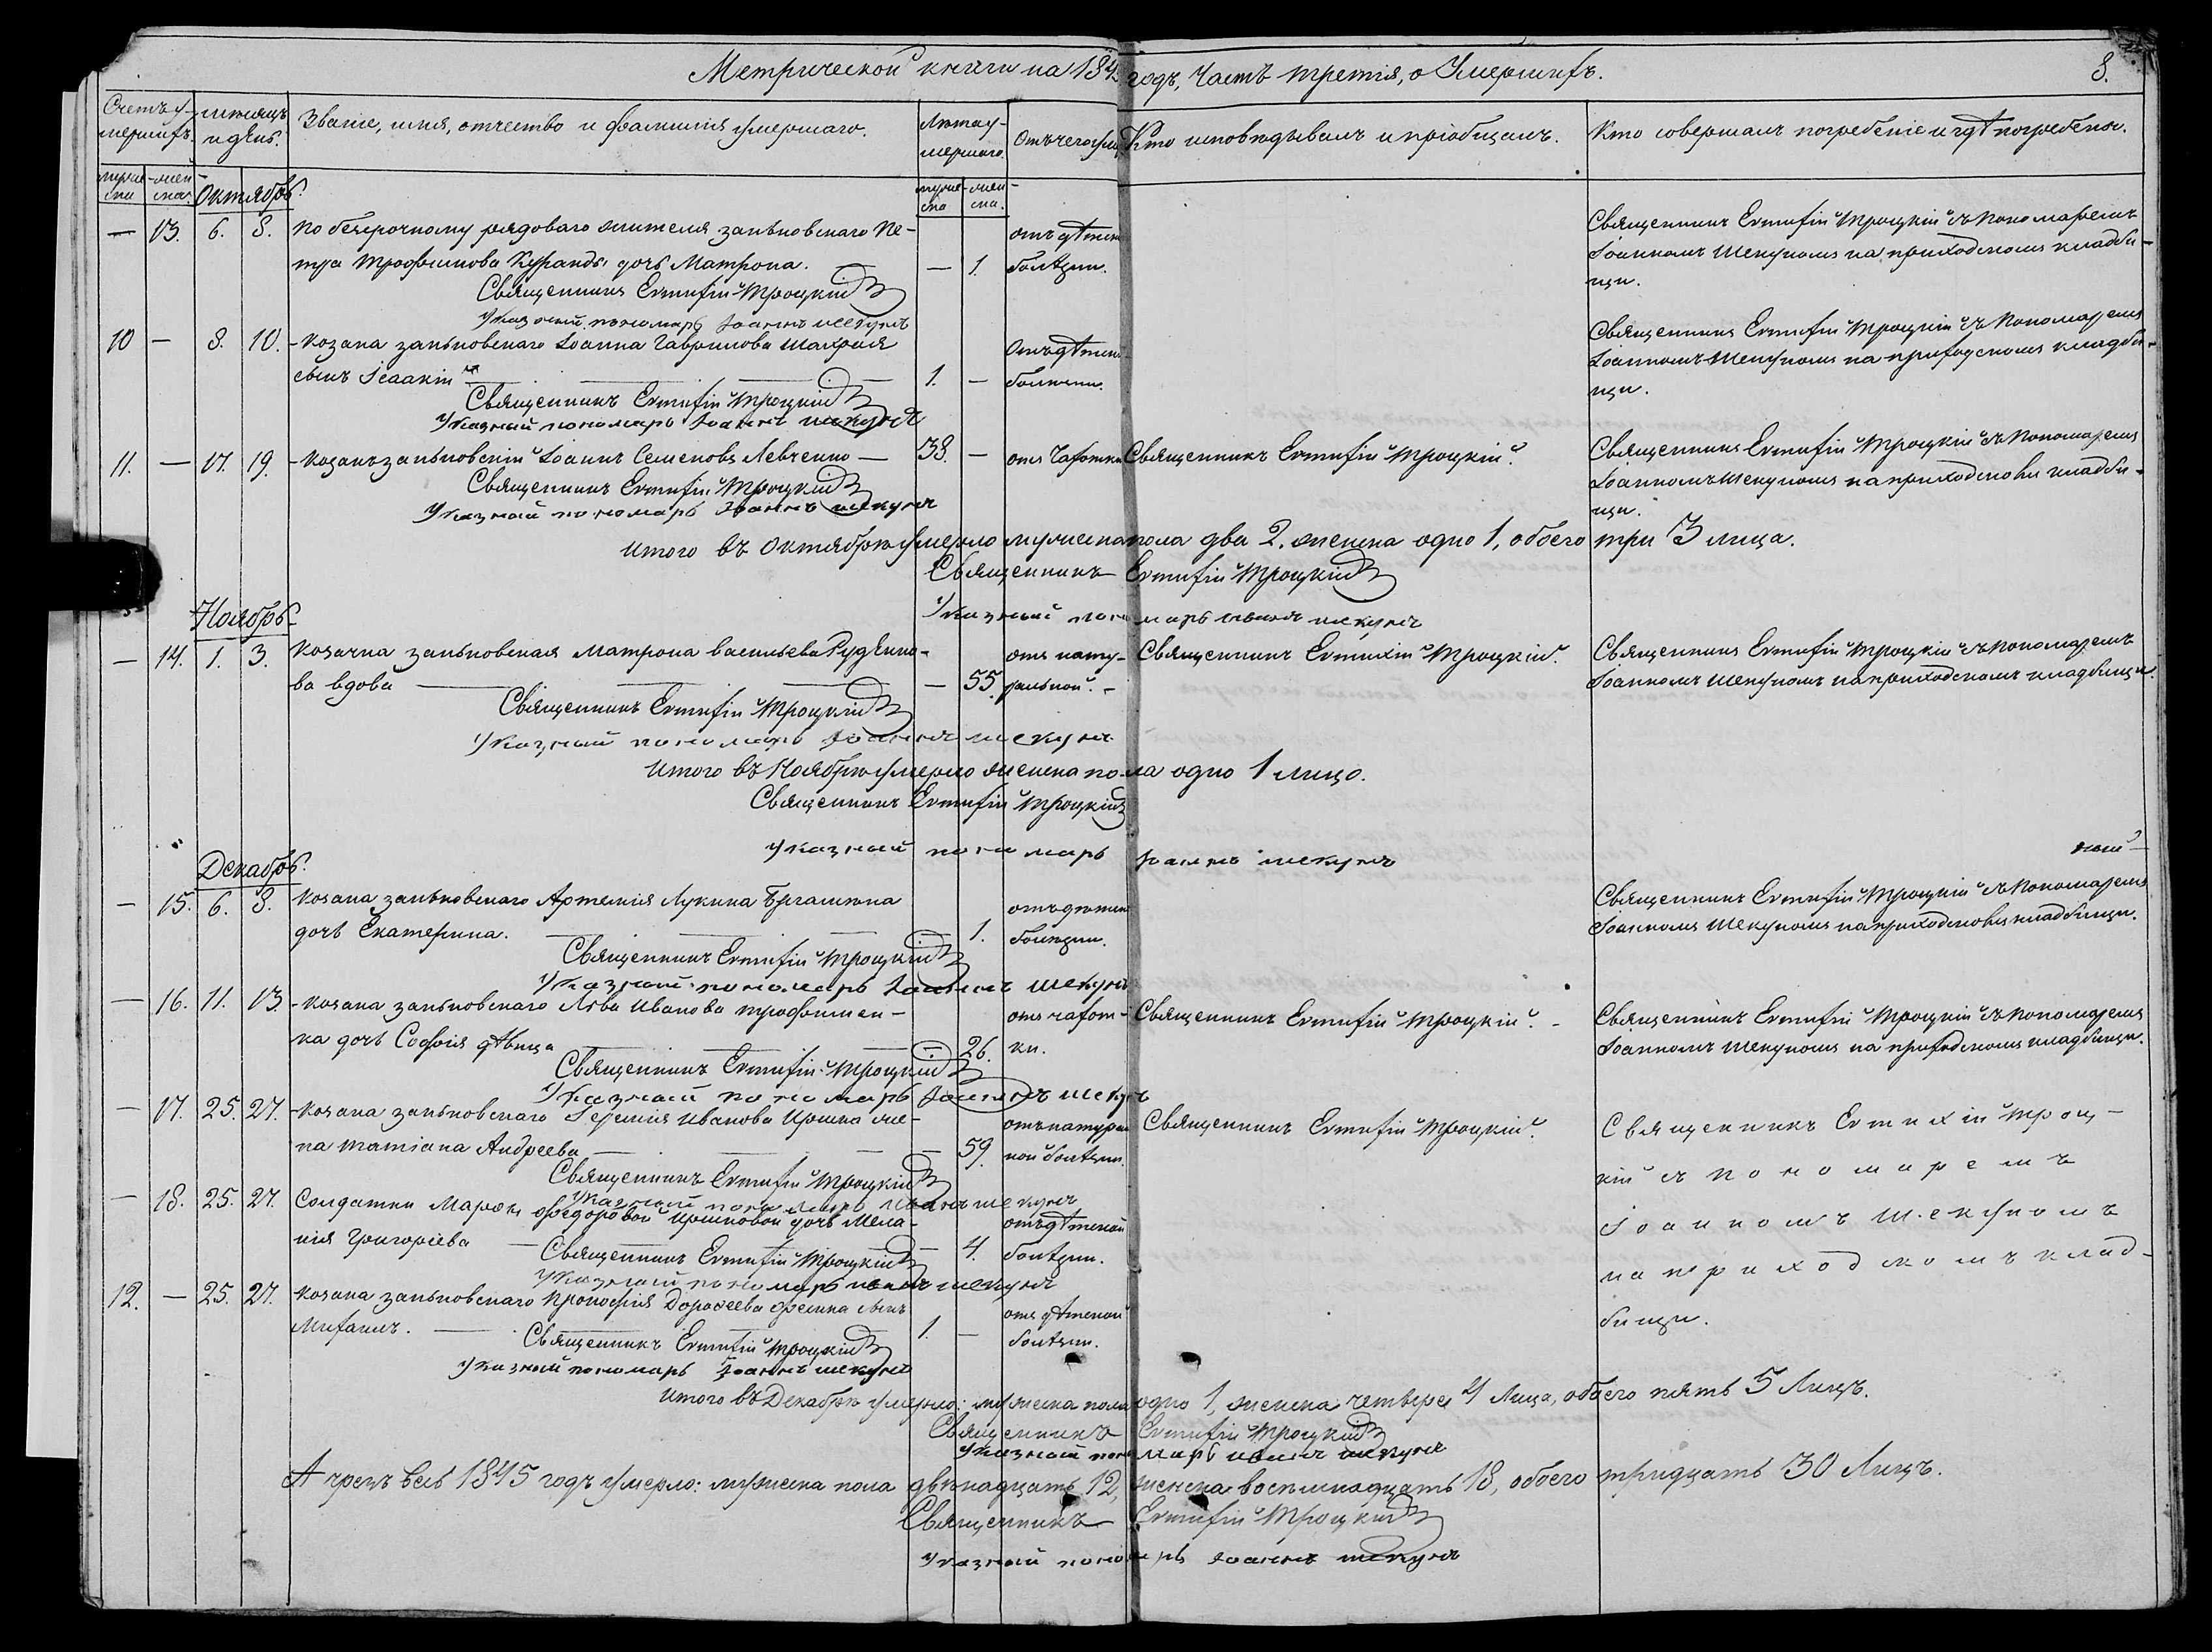 Метрической книги на 184 годъ, Часть третія, о Умершихъ. 8.
Счетъ у- мѣсяцъ Званіе, имя, отчество и фамилія умершаго. Лѣта у- Отъ чего умре Кто исповѣдывалъ и пріобщалъ. Кто совершалъ погребеніе и гдѣ погребены.
мершихъ. и день. мершаго.
муже- жен- Октябрь. муже- жен-
ска ска ска ска.
— 13. 6. 8. По безсрочному рядоваго жителя заньковскаго Пе- отъ дѣтск Священникъ Евтихій Троцкій съ Пономаремъ
тра Трофимова Куранды дочь Матрона. — 1. болѣзни. Іоанномъ Шекуномъ на приходскомъ кладби-
Священникъ Евтихій Троцкій щи.
Указной пономарь Іоаннъ Шекунъ
10 — 8. 10. Козака заньковскаго Іоанна Гаврилова Шахрая Отъ дѣтск Священникъ Евтихій Троцкій съ Пономаремъ
сынъ Ісаакій 1. — болѣзни. Іоанномъ Шекуномъ на приходскомъ кладби-
Священникъ Евтихій Троцкій щи.
Указный пономарь Іоаннъ Шекунъ
11. — 17. 19. Козакъ заньковскій Іоаннъ Семеновъ Левченко — 38. — отъ Чахотки Священникъ Евтихій Троцкій. Священникъ Евтихій Троцкій съ Пономаремъ
Священникъ Евтихій Троцкій Іоанномъ Шекуномъ на приходскомъ кладби-
Указный пономарь Іоаннъ Шекунъ щи.
Итого въ Октябрѣ умерло мужеска пола два 2. женска одно 1, обоего три 3 лица.
Священникъ Евтихій Троцкій
Указный пономарь Іоаннъ Шекунъ
Ноябрь
— 14. 1. 3. Козачка заньковская Матрона Васильева Руденко- отъ нату- Священникъ Евтихій Троцкій. Священникъ Евтихій Троцкій съ Пономаремъ
ва вдова — 55. ральной. Іоанномъ Шекуномъ на приходскомъ кладбищи.
Священникъ Евтихій Троцкій
Указный пономарь Іоаннъ Шекунъ
Итого въ Ноябрѣ умерло женска пола одно 1 лицо.
Священникъ Евтихій Троцкій
Указный пономарь Іоаннъ Шекунъ
Декабрь.
— 15. 6. 8. Козака заньковскаго Артемія Лукина отъ дѣтск Священникъ Евтихій Троцкій съ Пономаремъ
дочь Екатерина. — 1. болѣзни. Іоанномъ Шекуномъ на приходскомъ кладбищи.
Священникъ Евтихій Троцкій
Указный пономарь Іоаннъ Шекунъ
— 16. 11. 13. Козака заньковскаго Льва Иванова Трофимен- отъ чахот- Священникъ Евтихій Троцкій. Священникъ Евтихій Троцкій съ Пономаремъ
ка дочь Софія дѣвица 26. ки. Іоанномъ Шекуномъ на приходскомъ кладбищи.
Священникъ Евтихій Троцкій
Указный пономарь Іоаннъ Шекунъ
— 17. 25. 27. Козака заньковскаго Іеремія Иванова же- отъ натурал Священникъ Евтихій Троцкій. Священникъ Евтихій Троц-
на Татіана Андреева 59. ной болѣзни. кій съ пономаремъ
Священникъ Евтихій Троцкій
Указный пономарь Іоаннъ Шекунъ
— 18. 25. 27. Солдатки Марѳы Ѳедоровой дочь Мела- отъ дѣтской Іоанномъ Шекуномъ
нія Григоріева — 4. болѣзни. на приходскомъ клад-
Священникъ Евтихій Троцкій
Указный пономарь Іоаннъ Шекунъ
12. — 25. 27. Козака заньковскаго Прокофія Дорофеева сынъ отъ дѣтской бищи.
Михаилъ. 1. — болѣзни.
Священникъ Евтихій Троцкій
Указный пономарь Іоаннъ Шекунъ
Итого въ Декабрѣ умерло: мужеска пола одно 1, женска четыре 4 Лица, обоего пять 5 Лицъ.
Священникъ Евтихій Троцкій
Указный пономарь Іоаннъ Шекунъ
А чрезъ весь 1845 годъ умерло: мужеска пола двѣнадцать 12, женска восемнадцать 18, обоего тридцать 30 Лицъ.
Священникъ Евтихій Троцкій
Указный пономарь Іоаннъ Шекунъ